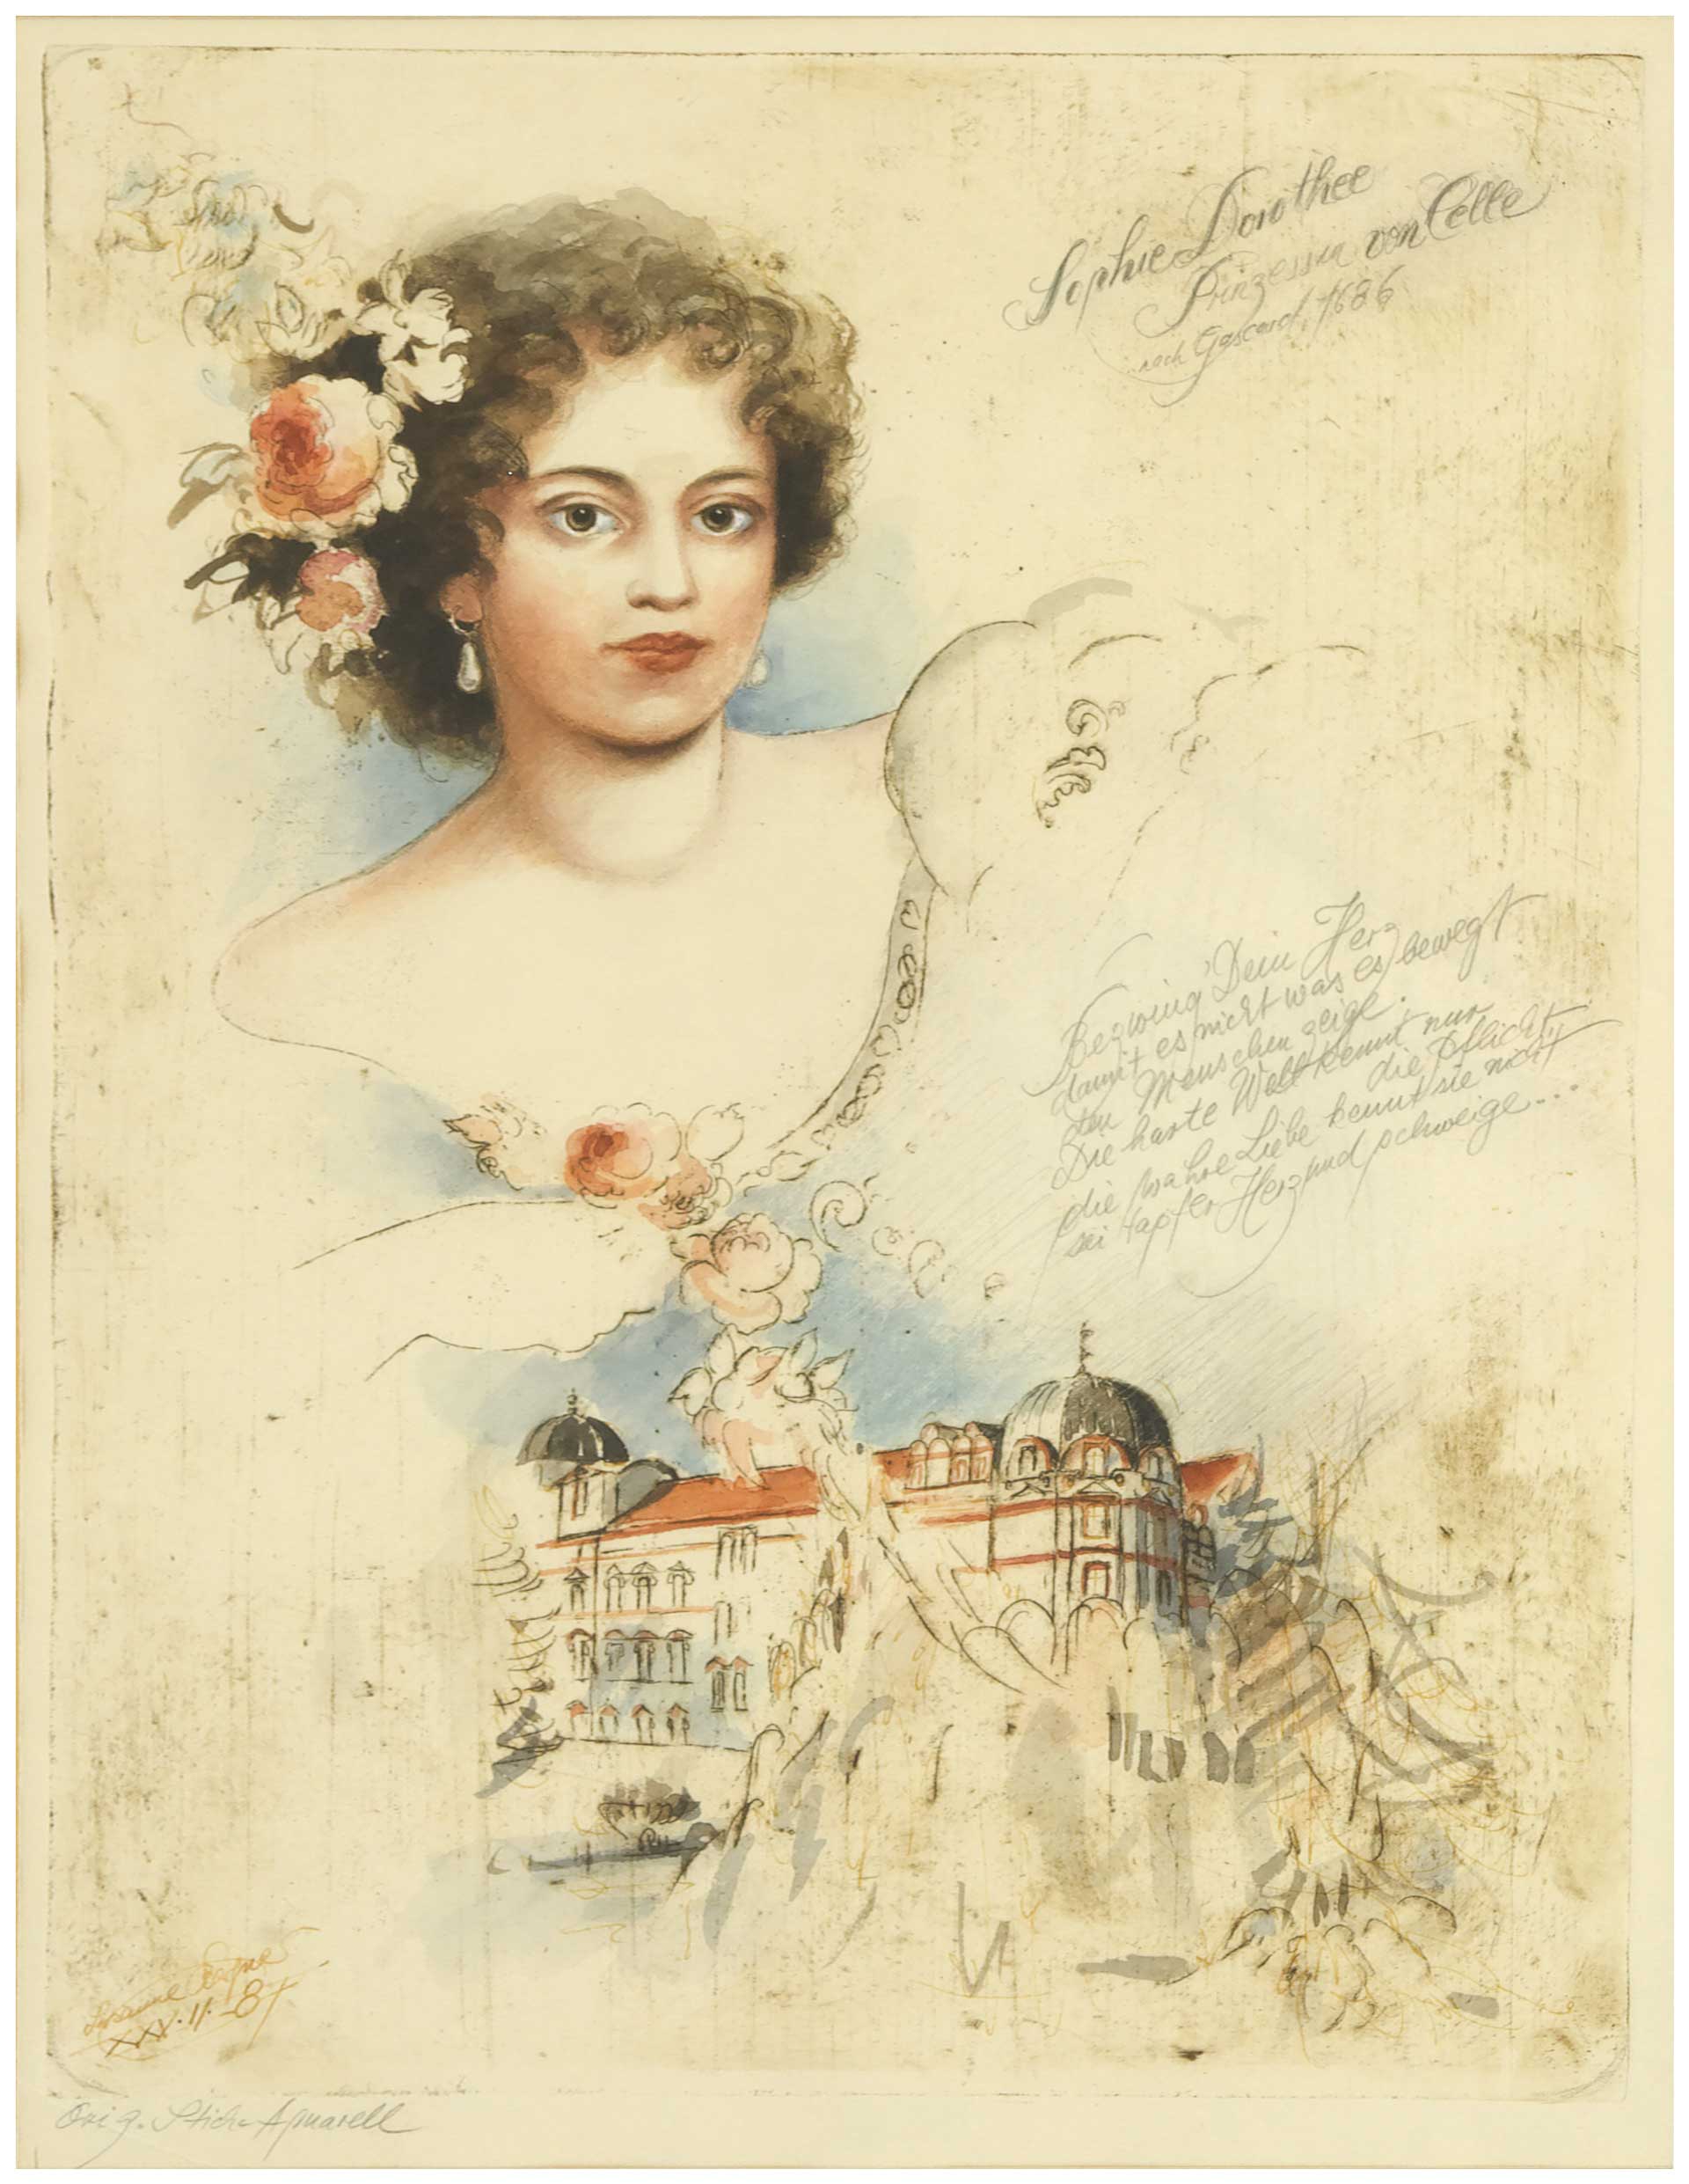 Sophie Dorothee
Prinzessin von Celle
nach Gascard, 1686
Bezwing' Dein Herz
damit es nicht was es bewegt
den Menschen zeige.
Die harte Welt kennt nur
die Pflicht
die wahre Liebe kennt sie nicht
sei tapfer Herz und schweige...
XXX.11.-87
Orig. Stich-Aquarell